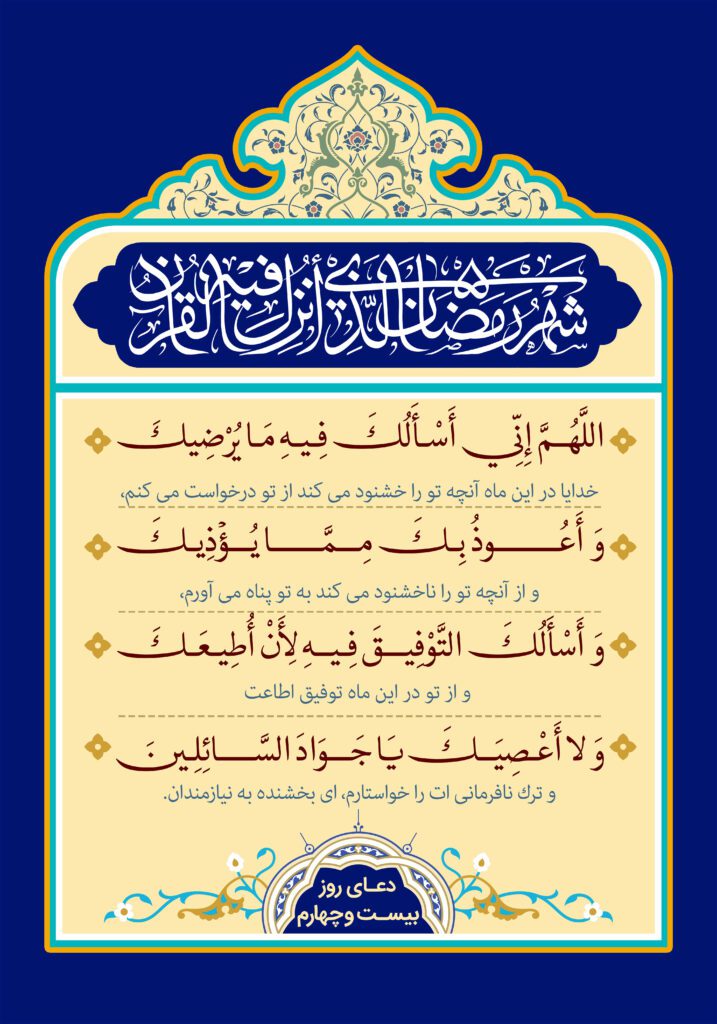 شَهْرُ رَمَضَانَ الَّذِي أُنْزِلَ فِيهِ الْقُرْآنُ
اللَّهُمَّ إِنِّي أَسْأَلُكَ فِيهِ مَا يُرْضِيكَ
خدایا در این ماه آنچه تو را خشنود می کند از تو درخواست می کنم،
وَ أَعُوذُ بِكَ مِمَّا يُؤْذِيكَ
و از آنچه تو را ناخشنود می کند به تو پناه می آورم،
وَ أَسْأَلُكَ التَّوْفِيقَ فِيهِ لِأَنْ أُطِيعَكَ
و از تو در این ماه توفیق اطاعت
وَ لا أَعْصِيَكَ يَا جَوَادَ السَّائِلِينَ
و ترك نافرمانی ات را خواستارم، ای بخشنده به نیازمندان.
دعـای روز
بیست وچهارم